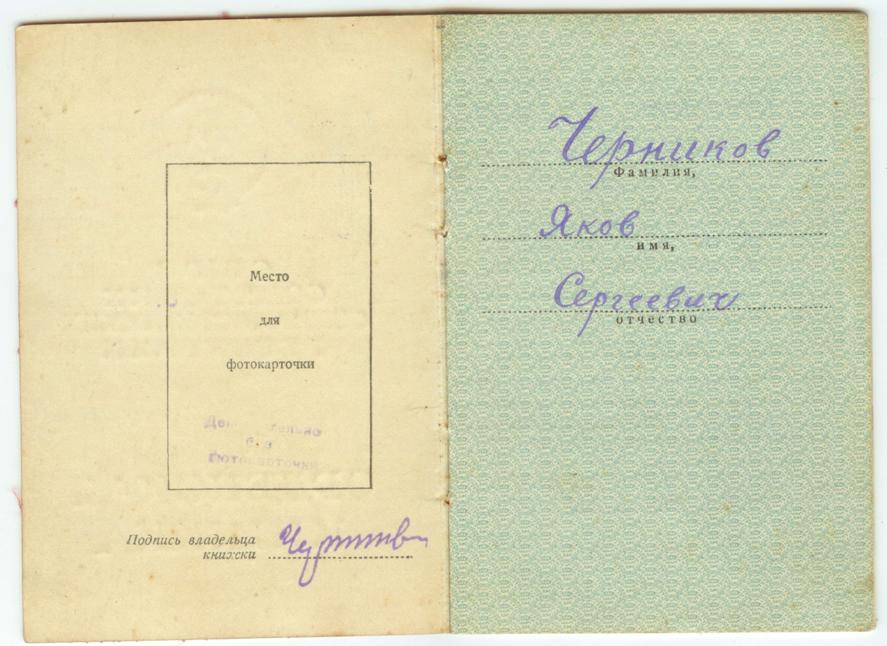 Место
для
фотокарточки
Действительно
без
фотокарточки
Подпись владельца
книжки
Черников
Фамилия,
Яков
имя,
Сергеевич
отчество